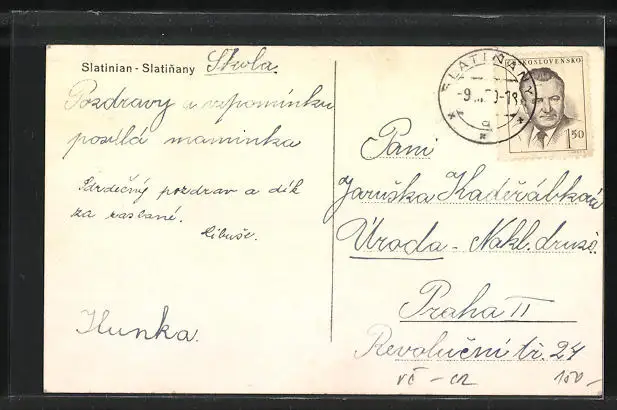 Slatinian - Slatiňany Škola.
Pozdravy a vzpomínku
posílá maminka
Srdečný pozdrav a dík
za zaslané.
Libuše.
Hunka.
SLATIŇANY
-9. 50-19
ČESKOSLOVENSKO
1 50
Paní
Jaruška Kadeřábková
Úroda - Nakl. druž.
Praha II
Revoluční tř. 24
vč - cr 100,-